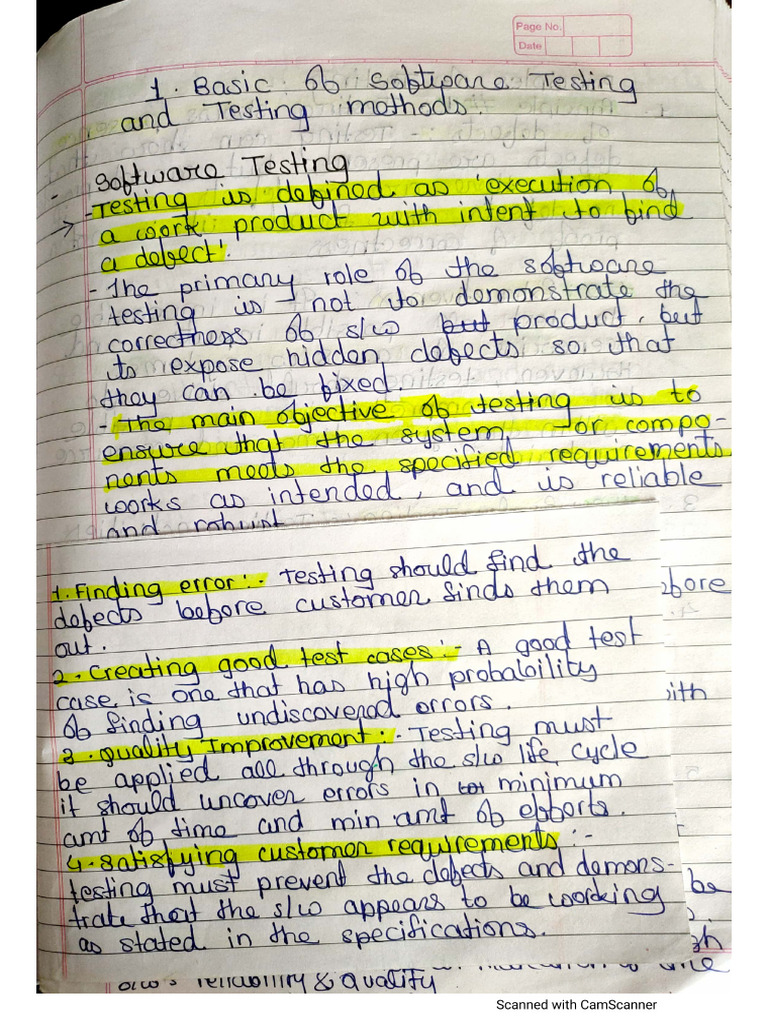 Page No.
Date
1. Basic of Software Testing
and Testing methods.
Software Testing
- Testing is defined as 'execution of
→ a work product with intent to find
a defect'.
- The primary role of the software
testing is not to demonstrate the
correctness of s/w but product, but
to expose hidden defects so that
they can be fixed.
- The main objective of testing is to
ensure that the system or compo-
nents meets the specified requirements
works as intended, and is reliable
and robust
1. Finding error:- Testing should find the
defects before customer finds them
out.
2. Creating good test cases:- A good test
case is one that has high probability
of finding undiscovered errors.
3. Quality Improvement:- Testing must
be applied all through the s/w life cycle
it should uncover errors in minimum
amt of time and min amt of efforts.
4. Satisfying customer requirements:-
testing must prevent the defects and demons-
trate that the s/w appears to be working
as stated in the specifications.
be
reliability & quality
Scanned with CamScanner